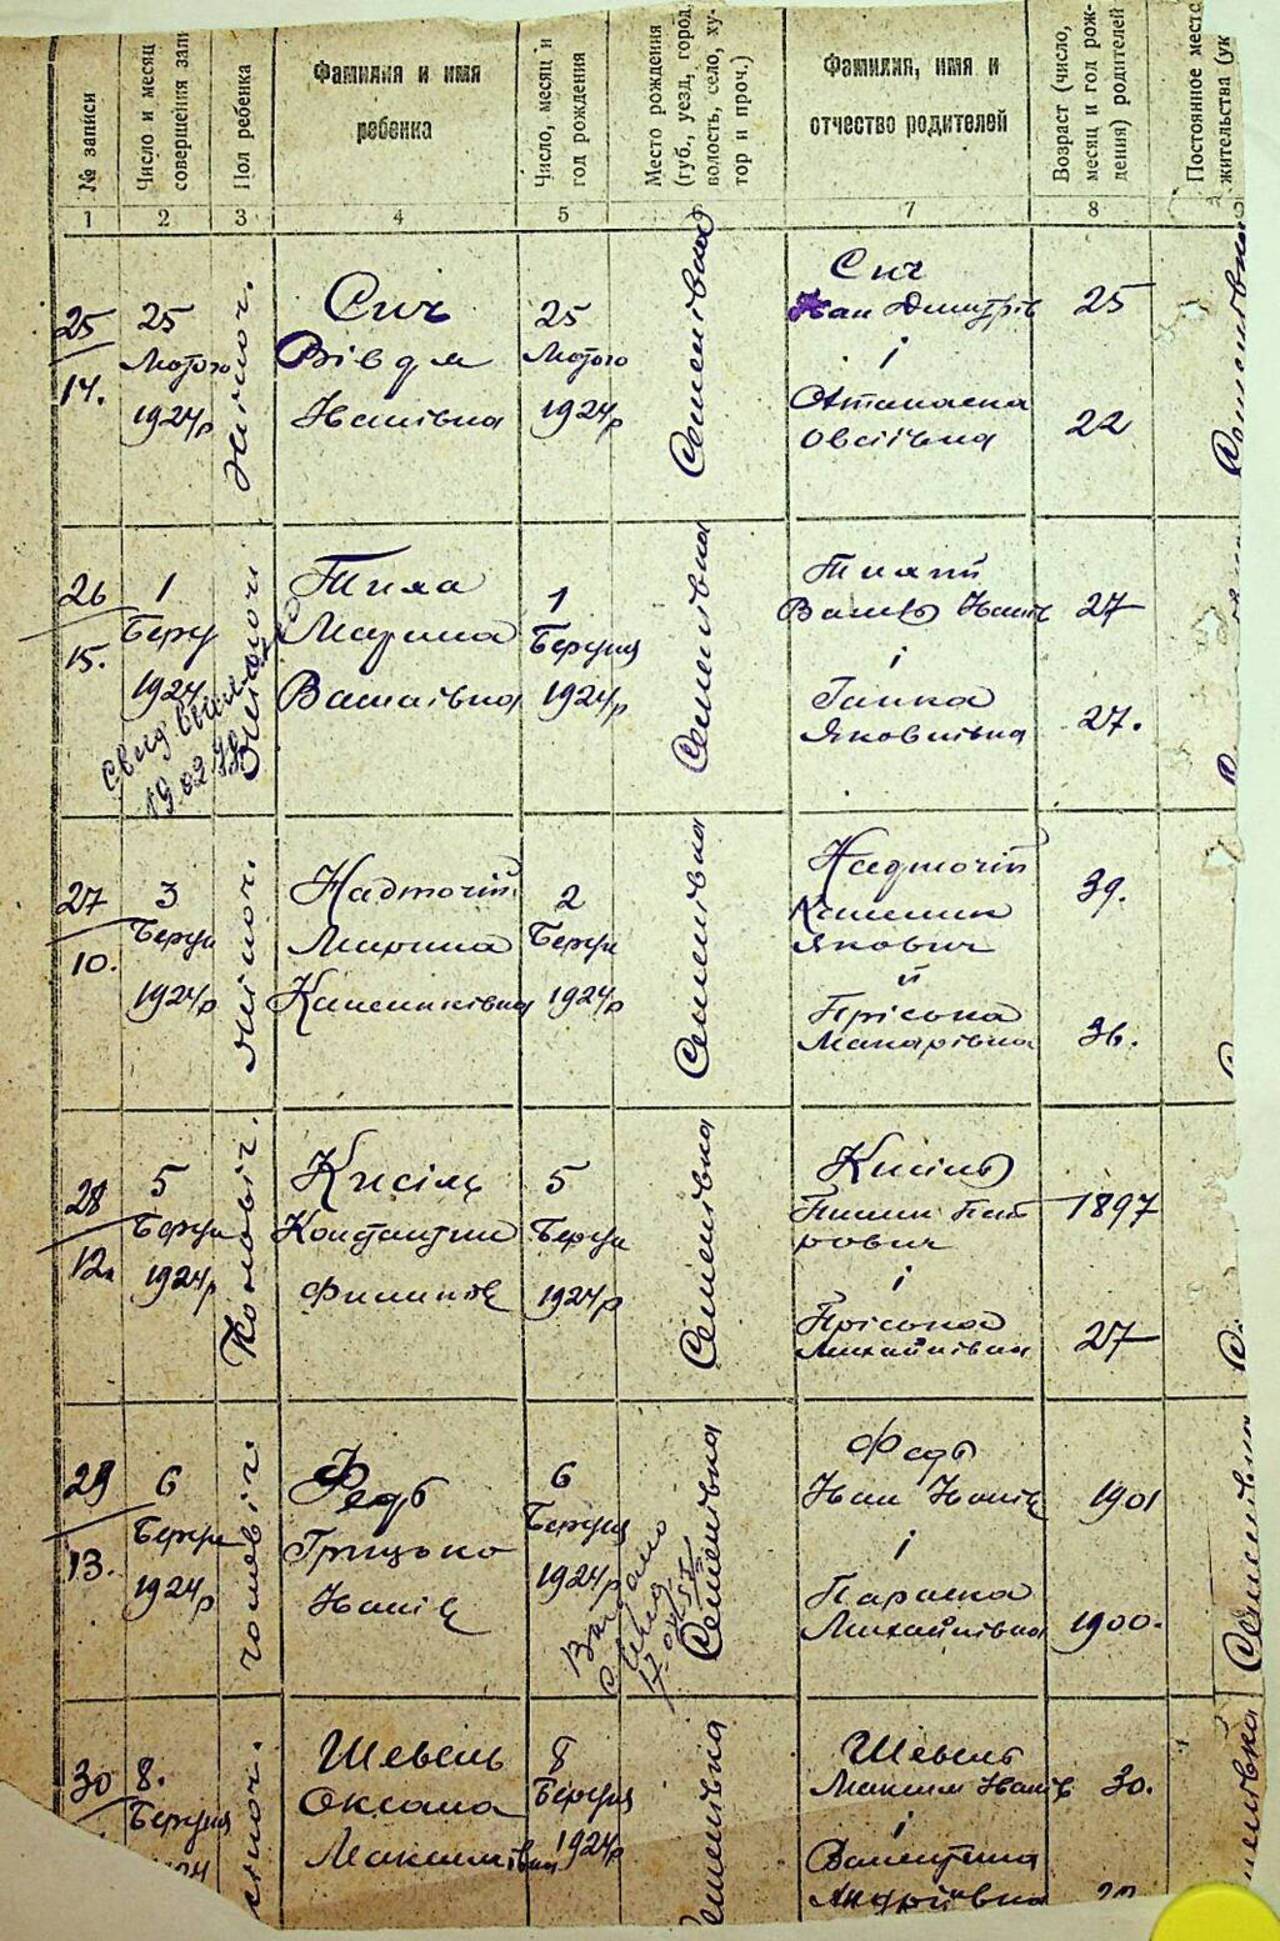 № записи
Число и месяц
совершения запи
Пол ребенка
Фамилия и имя
ребенка
Число, месяц и
год рождения
Место рождения
(губ., уезд, город,
волость, село, ху-
тор и проч.)
Фамилия, имя и
отчество родителей
Возраст (число,
месяц и год рож-
дения) родителей
Постоянное место
жительства (ук
1 2 3 4 5 7 8 9
25
14.
25
Лютого
1924р
Жіноч.
Сич
Вівдя
Іванівна
25
Лютого
1924р
Семенівка
Сич
Іван Дмитрів
і
Атанаска
Овсіївна
25
22
26
15.
1
Берез
1924
19 02
Жіноч.
Марина
1
Березня
1924р
Семенівка
і
Ганка
Яковлівна
27
27.
27
10.
3
Березн
1924р
Жіноч.
Надточій
Марина
Калениківна
2
Березн
1924р
Семенівка
Надточій
Каленик
Якович
й
Пріська
Макарівна
39.
36.
28
12.
5
Березн
1924р
Чоловіч.
Кисіль
Константин
Филипів
5
Березн
1924р
Семенівка
Кисіль
Пилип
рович
і
Пріська
Михайлівна
1897
27
29
13.
6
Березн
1924р
чоловіч.
Федб
Грицько
Іванів
6
Березня
1924р
Видано
Семенівка
Федб
Іван Іванів
і
Параска
Михайлівна
1901
1900.
Семенівка
30
8.
Березня
Шевель
Оксана
Максимівна
8
Березня
1924р
еменівка
Шевель
Максим Іванів
і
Валентина
Андріївна
30.